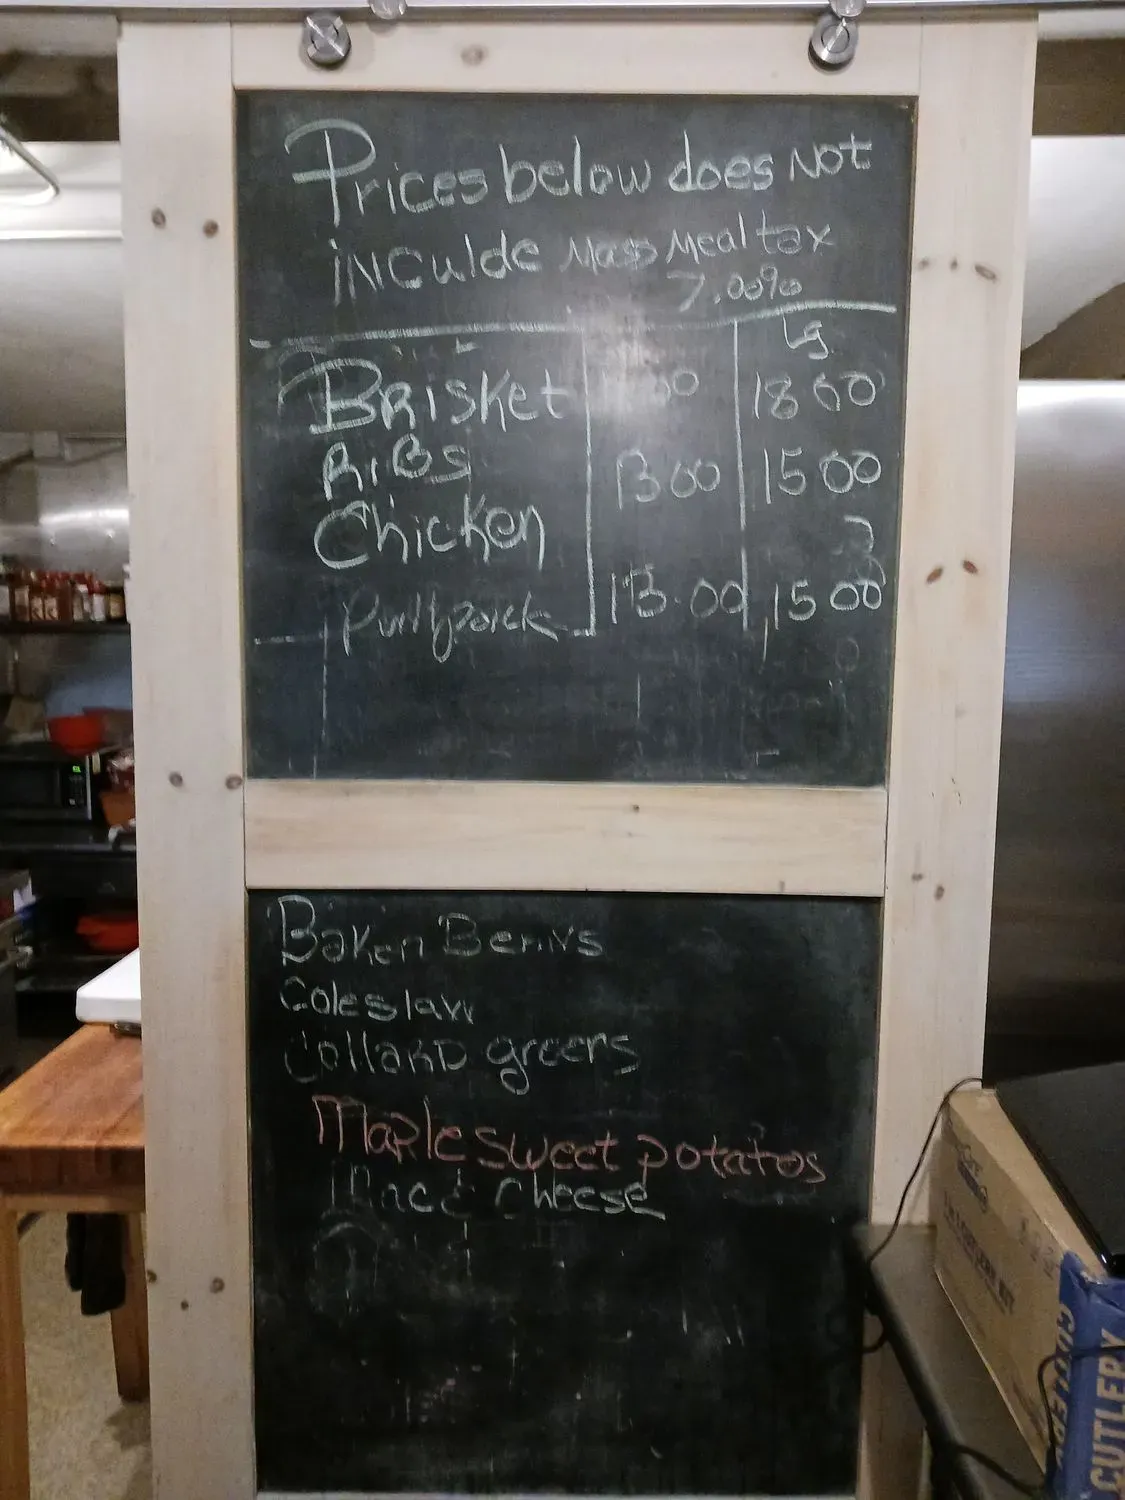 Prices below does Not
iNCulde Mass Meal tax
7.00%
Lg
BRisket 18 00
RiBs 13 00 15 00
Chicken
Pullporck 13.00 15 00
Baken Beans
Coleslaw
CollaRD greens
MaPle sweet potatos
Mac & cheese
CUTLERY
CUTLERY